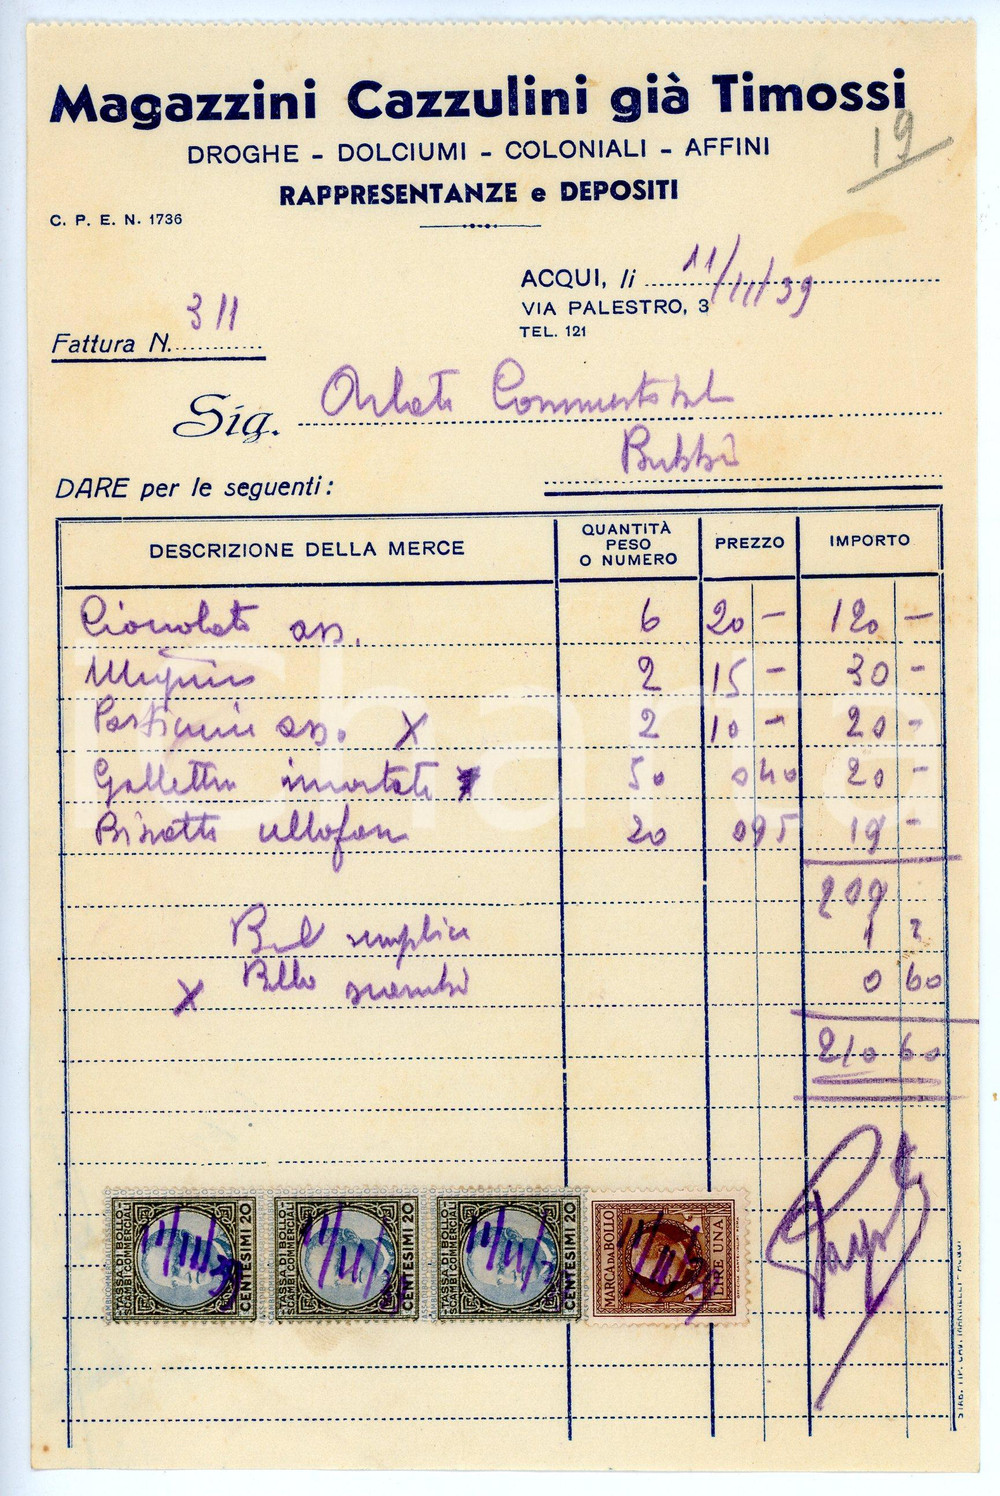 Magazzini Cazzulini già Timossi
DROGHE - DOLCIUMI - COLONIALI - AFFINI
19
RAPPRESENTANZE e DEPOSITI
C. P. E. N. 1736
ACQUI, li 11/III/39
VIA PALESTRO, 3
TEL. 121
Fattura N. 311
Sig.
Bubbio
DARE per le seguenti:
DESCRIZIONE DELLA MERCE QUANTITÀ PESO O NUMERO PREZZO IMPORTO
Cioccolato ass. 6 20 - 120 -
2 15 - 30 -
Pasticcini ass. x 2 10 - 20 -
50 0 40 20 -
Biscotti cellofan 20 0 95 19 -
209
Bol semplice 1
x Bollo scambi 0 60
210 60
TASSA DI BOLLO SCAMBI COMMERCIALI CENTESIMI 20
TASSA DI BOLLO SCAMBI COMMERCIALI CENTESIMI 20
TASSA DI BOLLO SCAMBI COMMERCIALI CENTESIMI 20
MARCA DA BOLLO LIRE UNA
11/III/39
11/III/39
11/III/39
Pagato